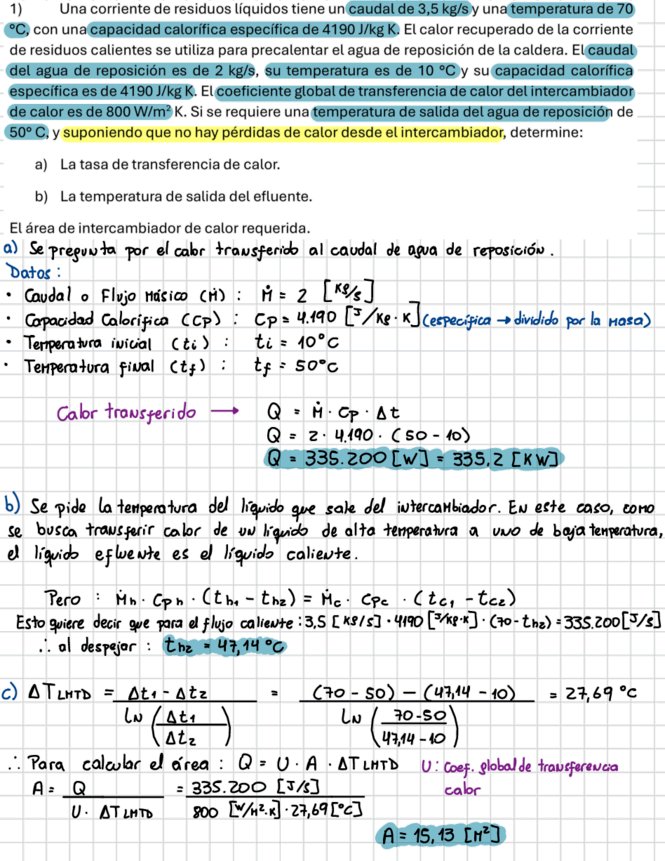 1) Una corriente de residuos líquidos tiene un caudal de 3,5 kg/s y una temperatura de 70
ºC, con una capacidad calorífica específica de 4190 J/kg K. El calor recuperado de la corriente
de residuos calientes se utiliza para precalentar el agua de reposición de la caldera. El caudal
del agua de reposición es de 2 kg/s, su temperatura es de 10 ºC y su capacidad calorífica
específica es de 4190 J/kg K. El coeficiente global de transferencia de calor del intercambiador
de calor es de 800 W/m² K. Si se requiere una temperatura de salida del agua de reposición de
50º C, y suponiendo que no hay pérdidas de calor desde el intercambiador, determine:
a) La tasa de transferencia de calor.
b) La temperatura de salida del efluente.
El área de intercambiador de calor requerida.
a) Se pregunta por el calor transferido al caudal de agua de reposición.
Datos:
• Caudal o Flujo Másico (Ṁ) : Ṁ = 2 [kg/s]
• Capacidad Calorífica (Cp) : Cp = 4.190 [J/kg·K] (específica → dividido por la masa)
• Temperatura inicial (ti) : ti = 10°C
• Temperatura final (tf) : tf = 50°C
Calor transferido → Q = Ṁ · Cp · Δt
Q = 2 · 4.190 · (50 - 10)
Q = 335.200 [W] = 335,2 [KW]
b) Se pide la temperatura del líquido que sale del intercambiador. En este caso, como
se busca transferir calor de un líquido de alta temperatura a uno de baja temperatura,
el líquido efluente es el líquido caliente.
Pero : Ṁh · Cph · (th1 - th2) = Ṁc · Cpc · (tc1 - tc2)
Esto quiere decir que para el flujo caliente : 3,5 [kg/s] · 4190 [J/kg·K] · (70 - th2) = 335.200 [J/s]
∴ al despejar : th2 = 47,14 °C
c) ΔT LMTD = Δt1 - Δt2 / LN (Δt1 / Δt2) = (70 - 50) - (47,14 - 10) / LN (70 - 50 / 47,14 - 10) = 27,69 °C
∴ Para calcular el área : Q = U · A · ΔT LMTD U : Coef. global de transferencia calor
A = Q / U · ΔT LMTD = 335.200 [J/s] / 800 [W/M²·K] · 27,69 [°C]
A = 15,13 [M²]